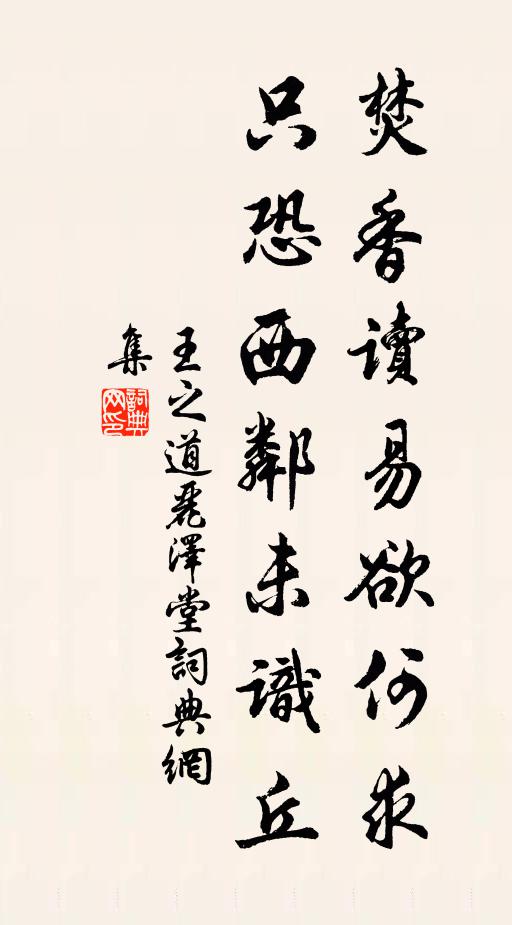 焚香讀易欲何求
只恐西鄰未識丘
王之道麗澤堂詞典網
集
詞典
网印